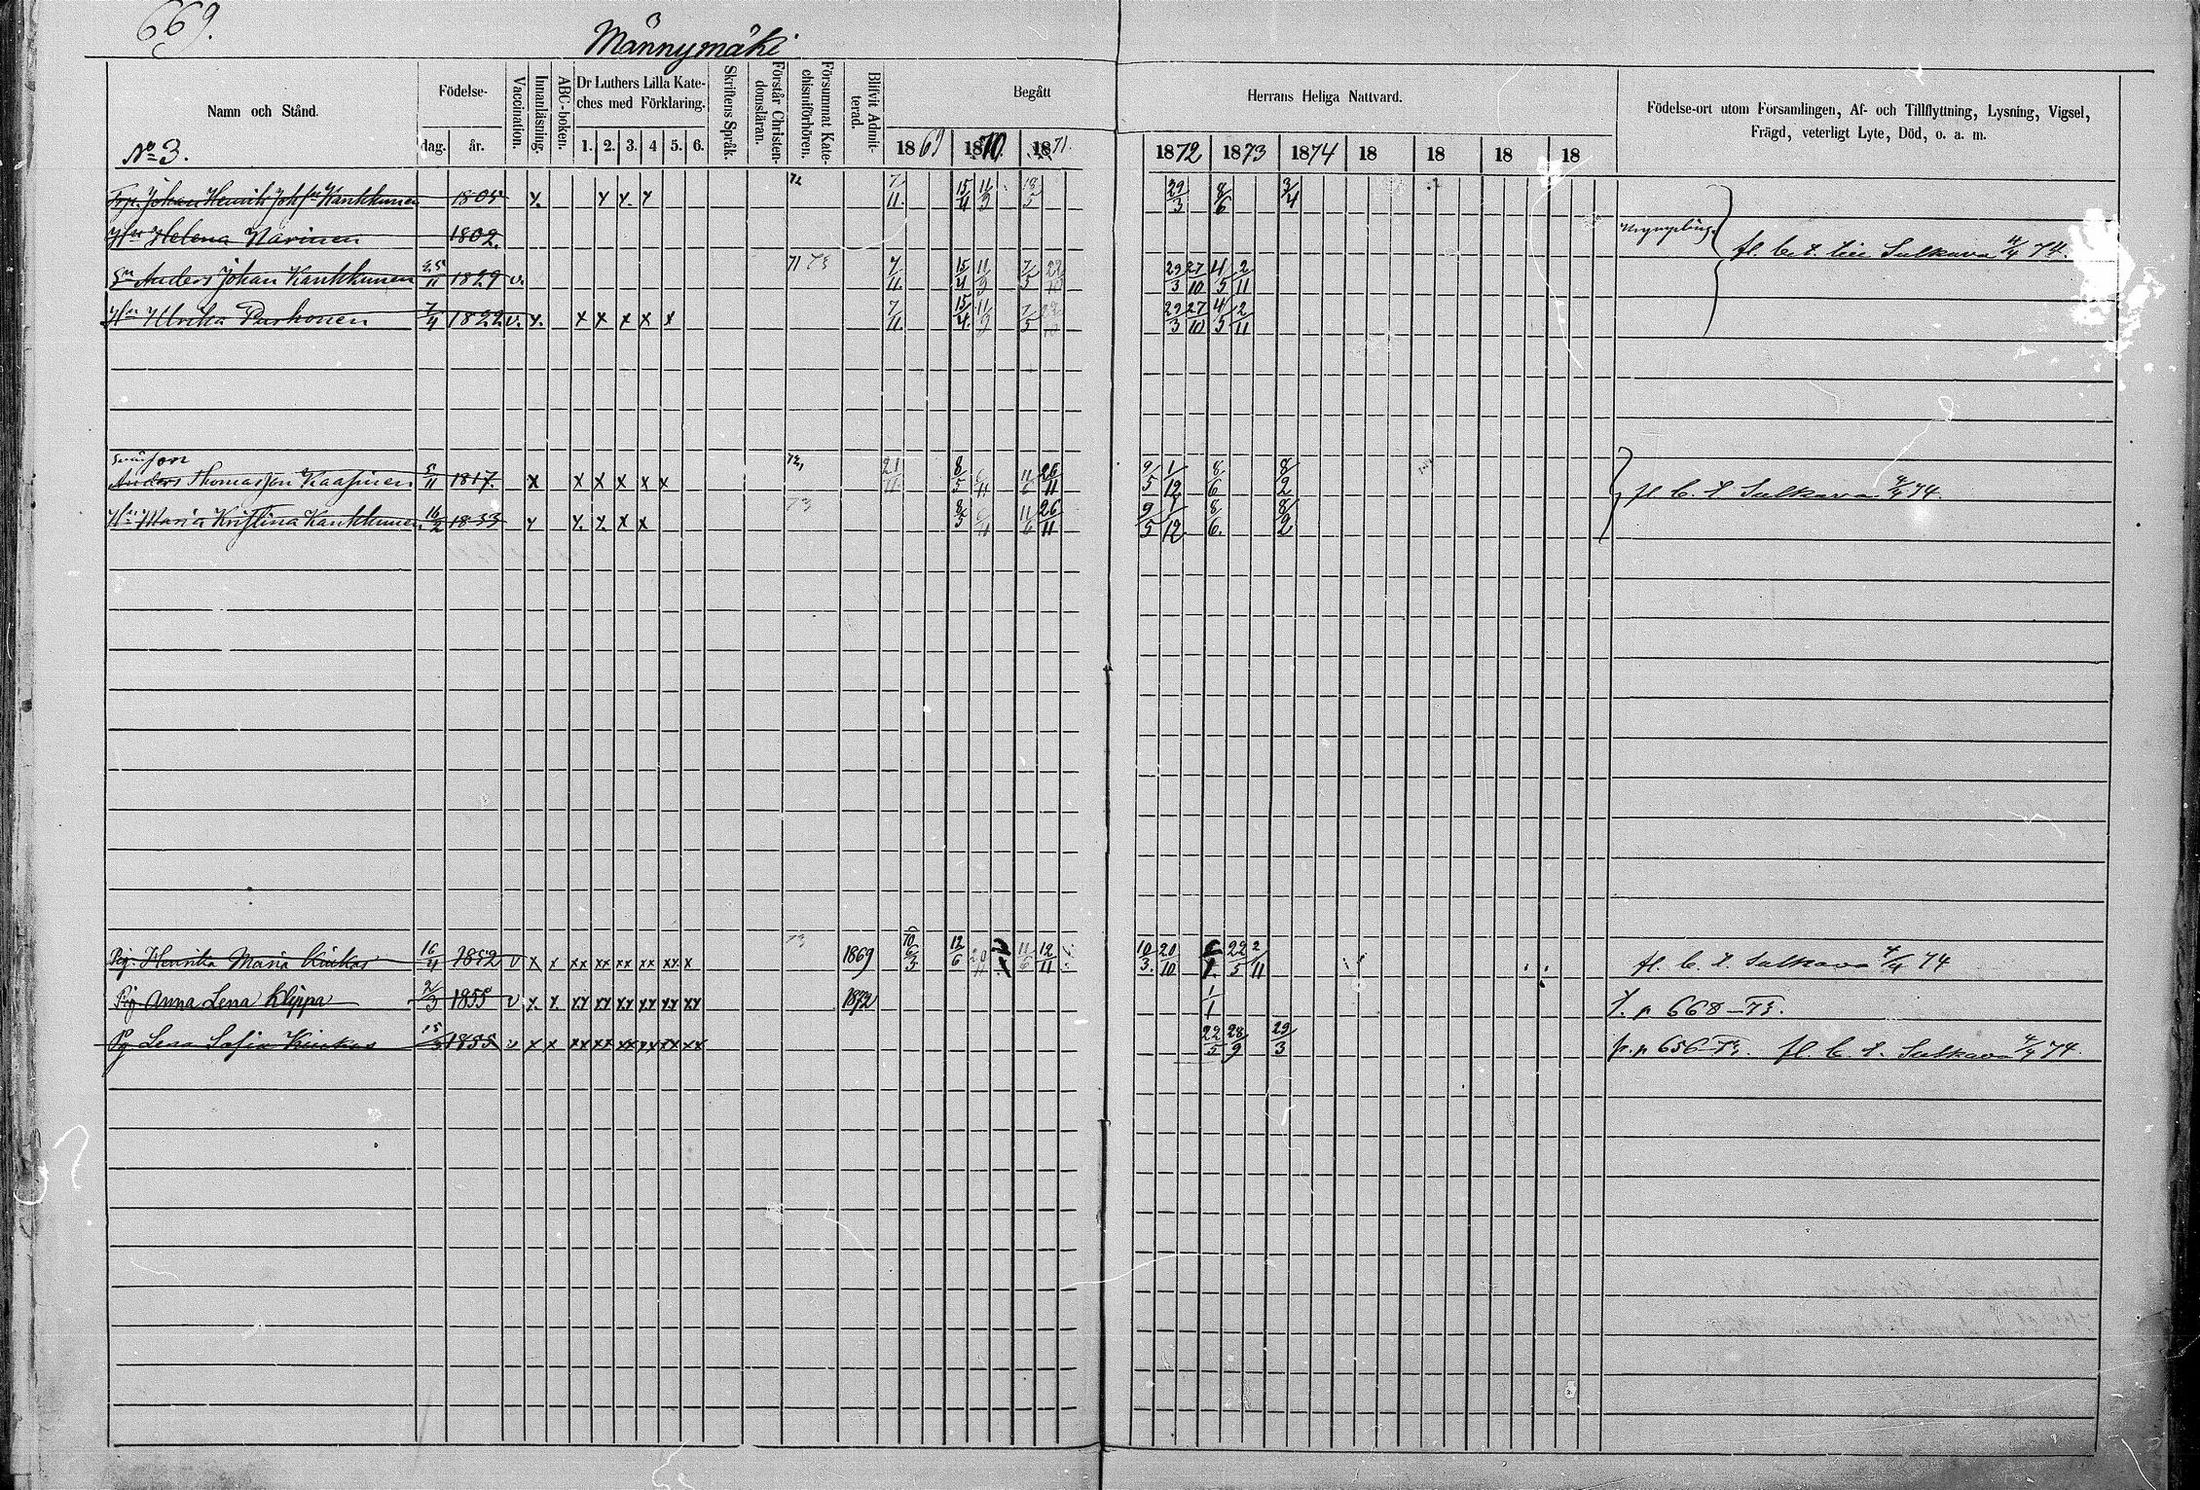 669.
Männymäki
Namn och Stånd.
Födelse-
dag.
år.
Vaccination.
Innanläsning.
ABC-boken.
Dr Luthers Lilla Kate-
ches med Förklaring.
1. 2. 3. 4 5. 6.
Skriftens Språk.
Förstår Christen-
domsläran.
Försummat Kate-
chismiförhören.
Blifvit Admit-
terad.
Begått
Herrans Heliga Nattvard.
Födelse-ort utom Församlingen, Af- och Tillflyttning, Lysning, Vigsel,
Frägd, veterligt Lyte, Död, o. a. m.
No 3.
1869 1870. 1871. 1872 1873 1874 18 18 18 18
Johan Henrik Kankkunen 1805 x. x x. x 72 7/11. 15/4 11/9 29/3 8/6 3/4
Helena Karinen 1802.
fl. b. t. Sulkava 4/4 74.
Sn Anders Johan Kankkunen 25/11 1829 v. 71 73 7/11 15/4 11/9 7/5 29/3 27/10 4/5 2/11
Hu Ulrika Parkonen 7/4 1822 v. x. x x x x x 7/11 15/4. 11/9 7/5 29/3 27/10 4/5 2/11
Anders Thomasson Kaasinen 5/11 1817. x x x x x x 21/11 8/5 11/6 26/11 9/5 1/12 8/6 8/2 fl b. t Sulkava 4/4 74
Hu Maria Kristina Kankkunen 16/2 1833 x x. x. x x 73 8/5 11/6 26/11 9/5 1/12 8/6. 8/2
Pig. Henrika Maria Kiukas 16/4 1852 v x x xx xx xx xx xx x 73 1869 12/6 20/11 11/6 12/11 10/3. 20/10 22/5 2/11 fl. b. t. Sulkava 4/4 74
Pig Anna Lena Klippa 2/3 1855 v x. x. xx xx xx xx xx xx 1872 1/1 t. p 668-73.
Pg Lena Sofia Kiukas 15/3 1855 v x x xx xx xx xx xx xx 22/5 28/9 29/3 p. p 656-73. fl b. t. Sulkava 4/4 74.